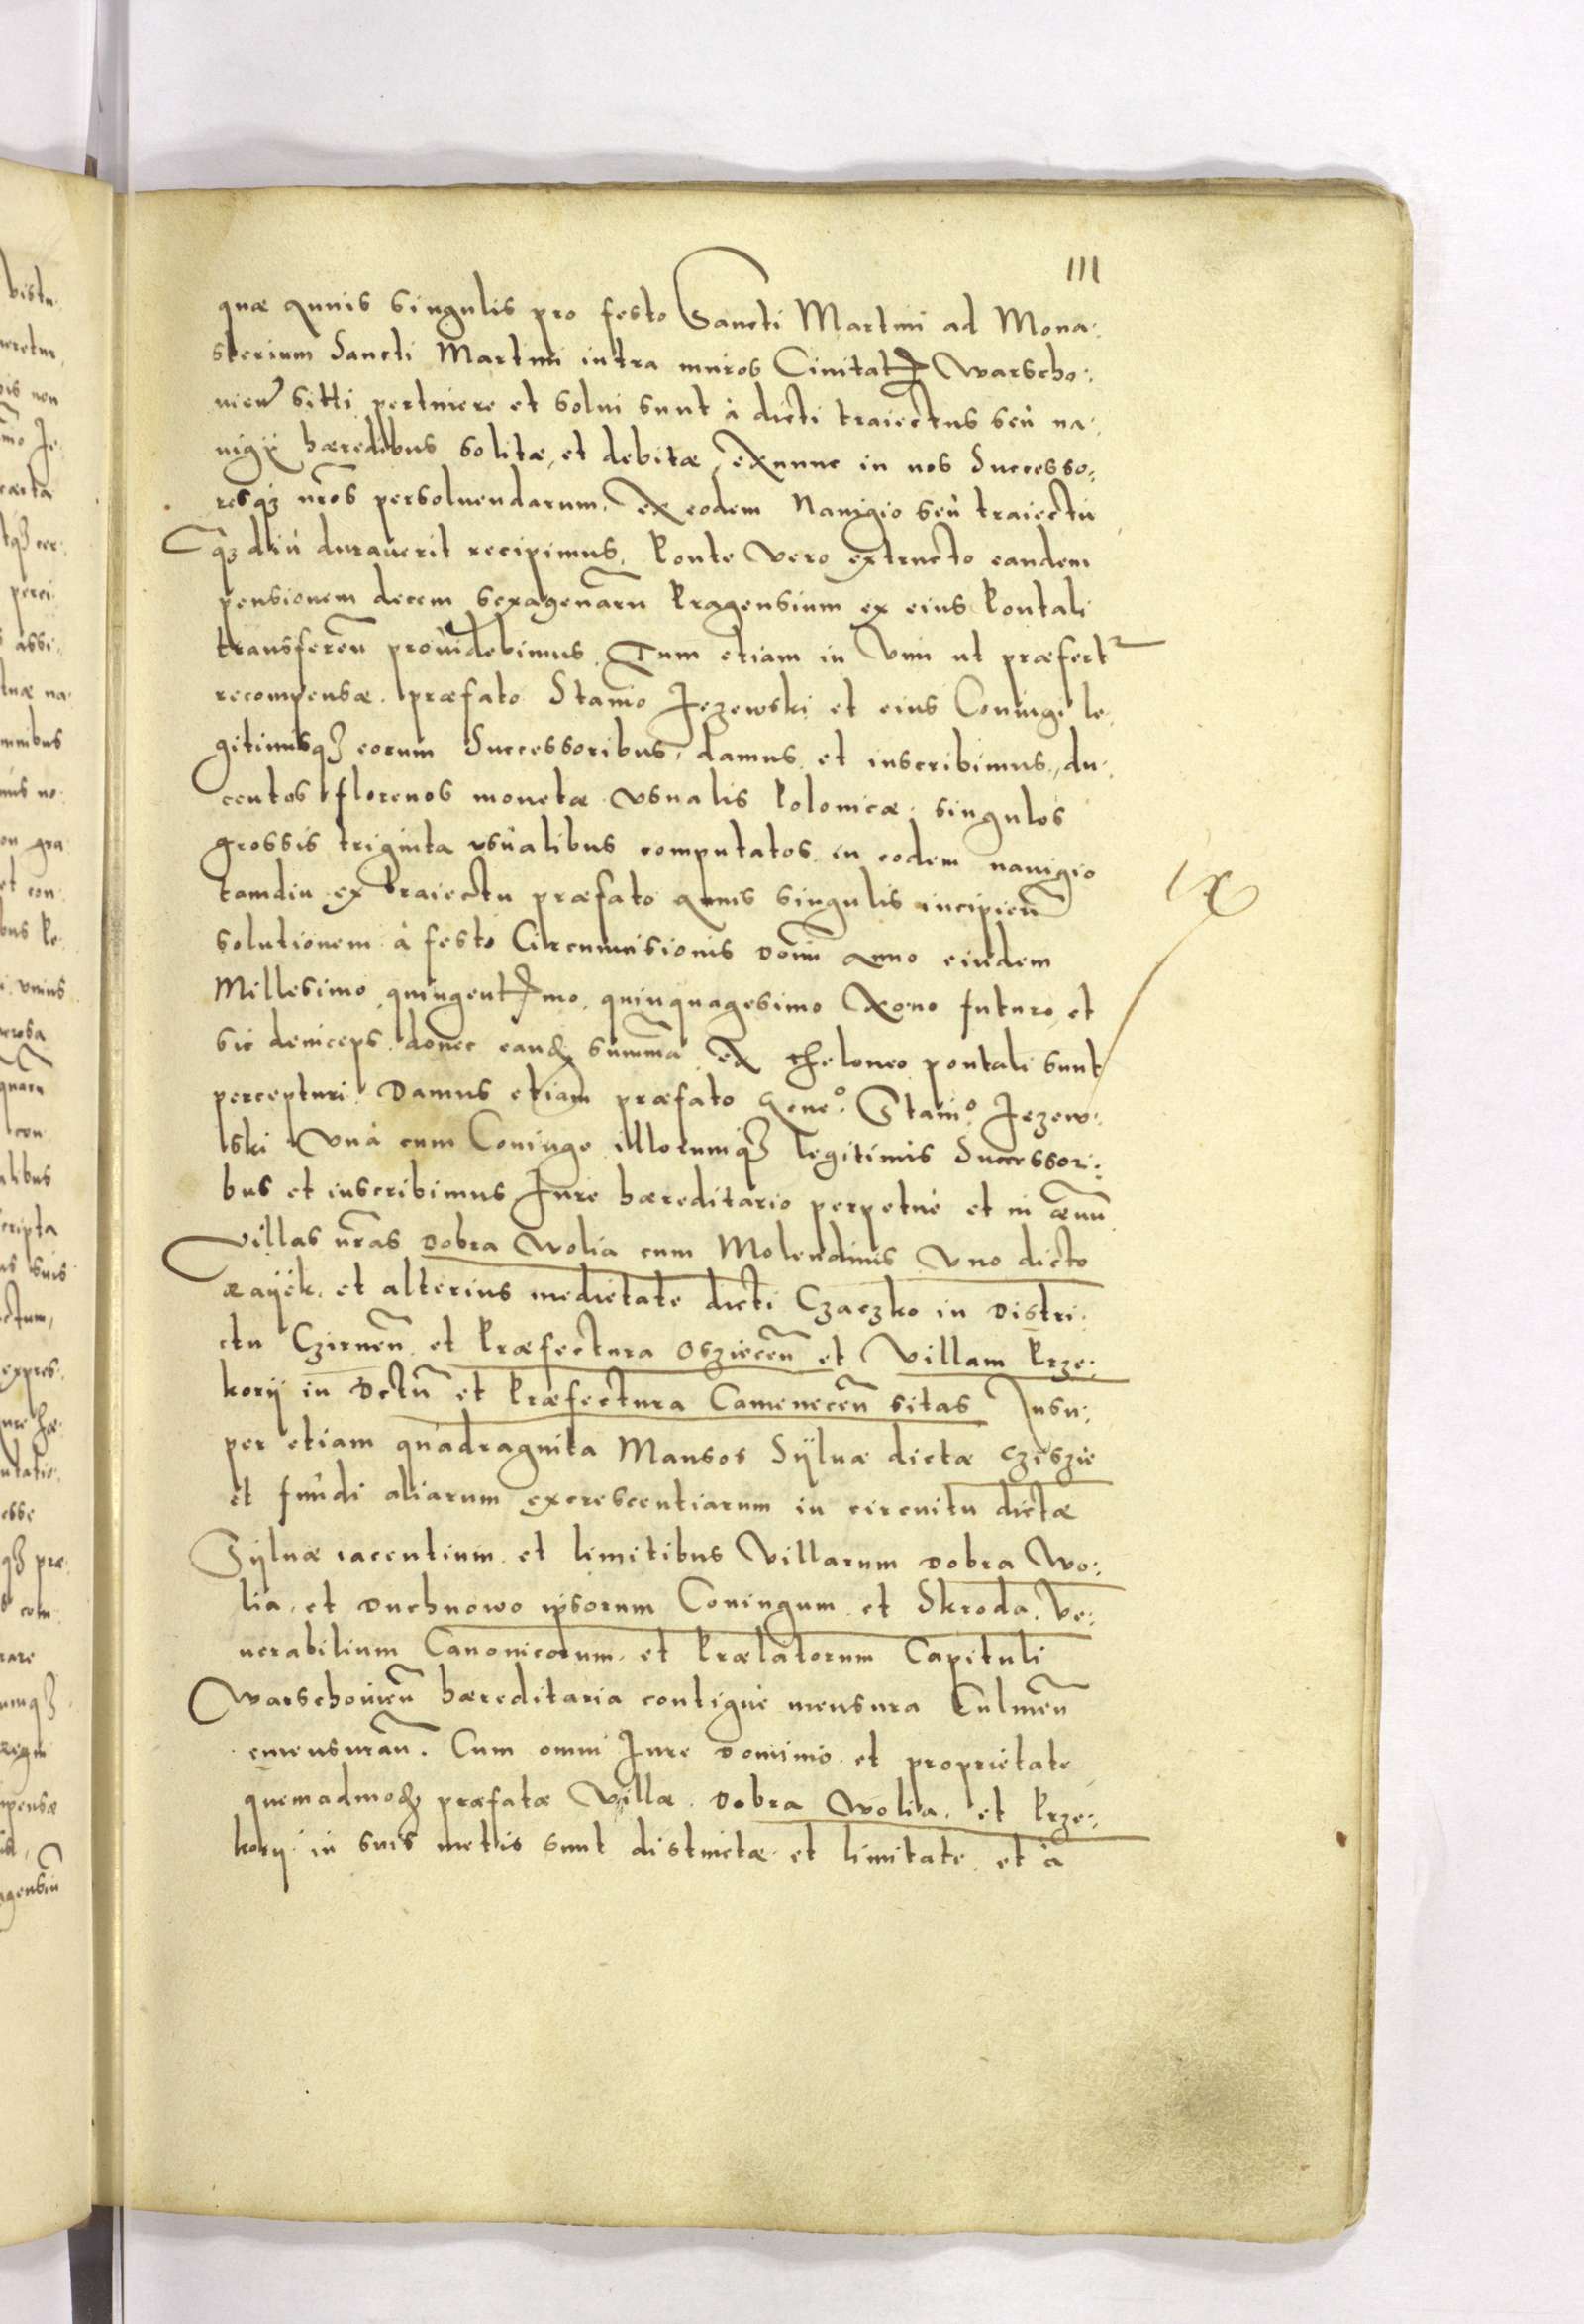 III
quæ Annis singulis pro festo Sancti Martini ad Mona:
sterium Sancti Martini intra muros Ciuitatis Warscho:
uien̄ sitti pertinere et solui sunt à dicti traiectus seù na:
uigÿ hæredibus solitæ, et debitæ, exnunc in nos Successo:
resq3 nr̄os persoluendarum, ex eodem Nauigio seù traiectu
q3 diù durauerit recipimus, Ponte vero extructo eandem
pensionem decem sexagenarū Pragensium ex eius Pontali
transferen̄ prouidebimus. Tum etiam in vim ut præfertr
recompensæ. præfato Stan̄io Jezewski et eius Coniugi le:
gitimisq3 eorum Successoribus, damus et inscribimus, du:
centos florenos monetæ vsualis Polonicæ, singulos
grossis triginta vsualibus computatos in eodem nauigio
tamdiu ex traiectu præfato Annis singulis incipien̄
solutionem à festo Circumcisionis Dom̄i Anno eiusdem
Millesimo quingentesimo quinquagesimo Nono futuro, et
sic deinceps, donec eand summā ex theloneo pontali sunt
percepturi. Damus etiam præfato Geneo. Stanio. Jezew:
ski vnà cum Coniuge illorumq3 legitimis Successori:
bus et inscribimus Jure hæreditario perpetuè et in æuū
villas nr̄as Dobra Wolia cum Molendinis vno dicto
Raÿek, et alterius medietate dicti Czaczko in Distri:
ctu Czirnen̄ et Præfectura Osziecen̄ et Villam Prze:
korÿ in Dctu̅ et Præfectura Camenecen̄ sitas Insu:
per etiam quadraginta Mansos Sÿluæ dictæ Cziszie
et fundi aliarum excrescentiarum in circuitu dictæ
Sÿluæ iacentium et limitibus Villarum Dobra Wo:
lia, et Duchnowo ipsorum Coniugum et Skroda, Ve:
nerabilium Canonicorum, et Prælatorum Capituli
Warschouien̄ hæreditaria contiguè mensura Culmen̄
emensuran̄. Cum omni Jure Dominio et proprietate
quemadmod præfatæ Villæ Dobra Wolia, et Prze:
korÿ in suis metis sunt distinctæ et limitate, et à